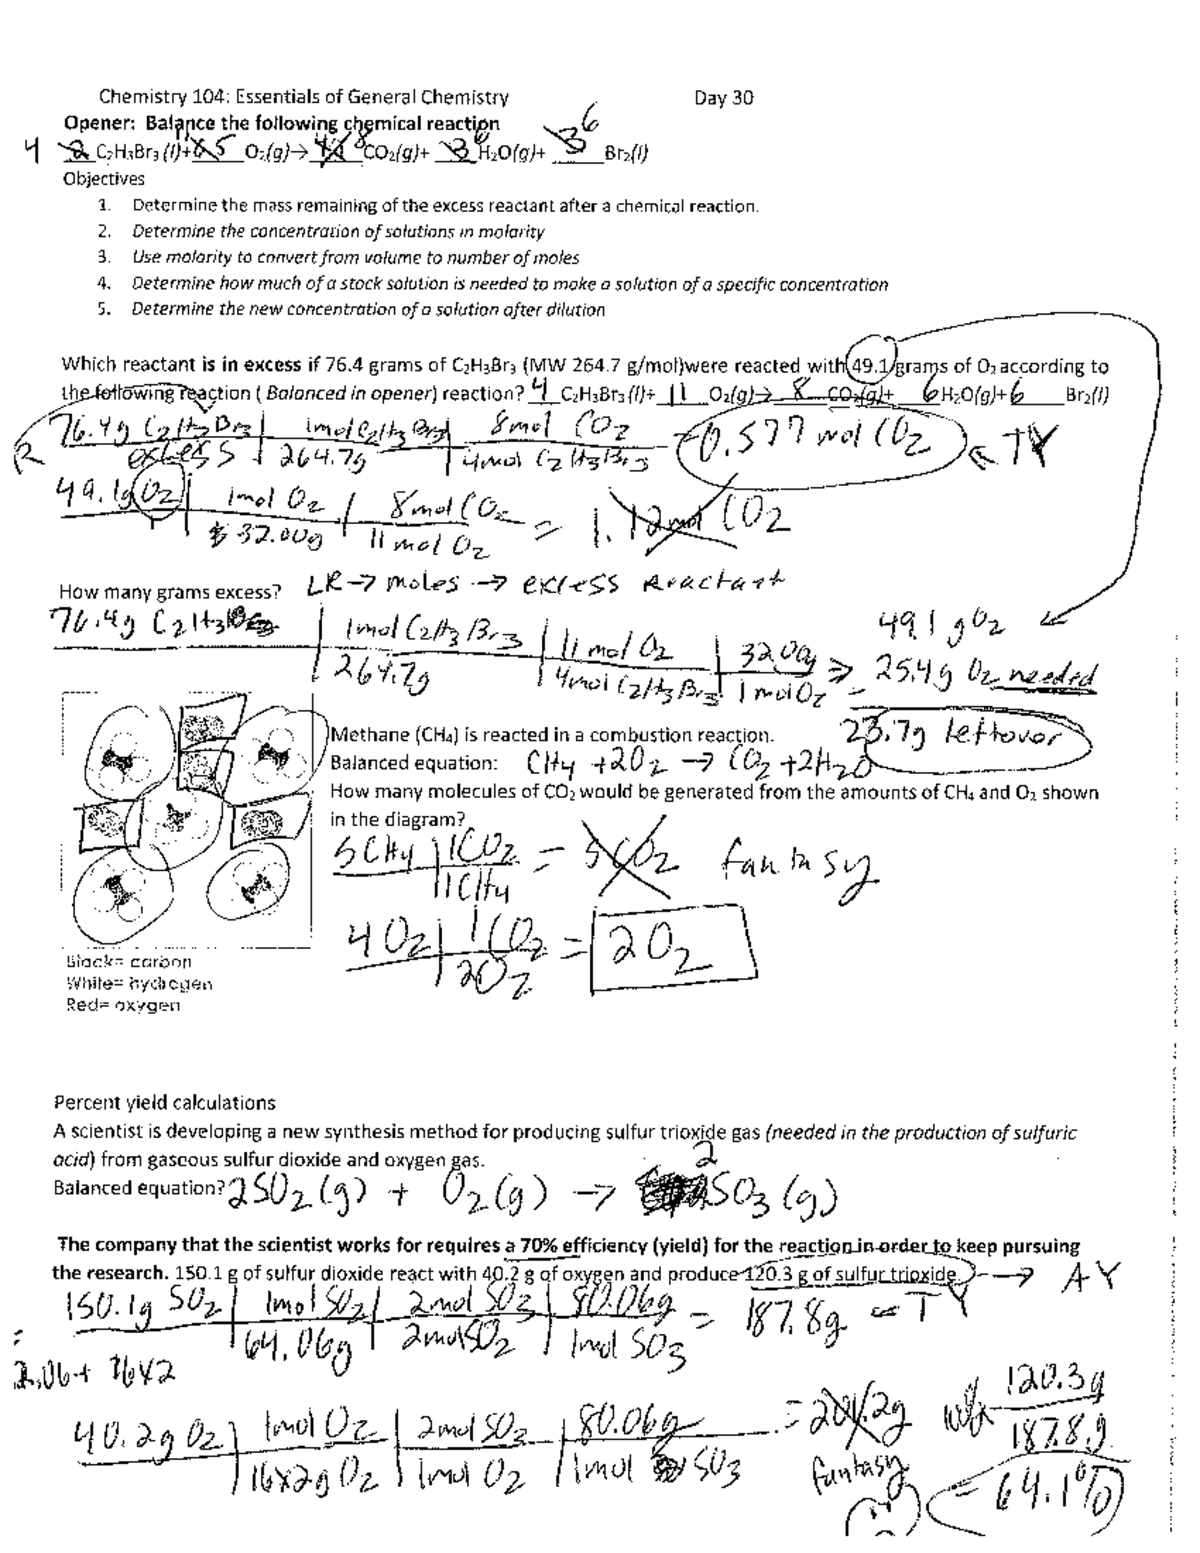 Chemistry 104: Essentials of General Chemistry Day 30
Opener: Balance the following chemical reaction
4 C₂H₃Br₃ (l)+ O₂(g)→ 8 CO₂(g)+ 6 H₂O(g)+ 6 Br₂(l)
Objectives
1. Determine the mass remaining of the excess reactant after a chemical reaction.
2. Determine the concentration of solutions in molarity
3. Use molarity to convert from volume to number of moles
4. Determine how much of a stock solution is needed to make a solution of a specific concentration
5. Determine the new concentration of a solution after dilution
Which reactant is in excess if 76.4 grams of C₂H₃Br₃ (MW 264.7 g/mol)were reacted with 49.1 grams of O₂ according to
the following reaction ( Balanced in opener) reaction? 4 C₂H₃Br₃(l)+ 11 O₂(g)→ 8 CO₂(g)+ 6 H₂O(g)+ 6 Br₂(l)
76.4g C₂H₃Br₃ | 1mol C₂H₃Br₃ | 8mol CO₂ = 0.577 mol CO₂ ← TY
excess | 264.7g | 4mol C₂H₃Br₃
49.1g O₂ | 1mol O₂ | 8mol CO₂ = 1.12mol CO₂
32.00g | 11 mol O₂
How many grams excess? LR → moles → excess Reactant
76.4g C₂H₃Br₃ | 1mol C₂H₃Br₃ | 11 mol O₂ | 32.00g ⇒ 25.4g O₂ needed
264.7g | 4mol C₂H₃Br₃ | 1 mol O₂
49.1 g O₂
23.7g leftover
Methane (CH₄) is reacted in a combustion reaction.
Balanced equation: CH₄ + 2O₂ → CO₂ + 2H₂O
How many molecules of CO₂ would be generated from the amounts of CH₄ and O₂ shown
in the diagram?
5CH₄ | 1CO₂ = 5CO₂ fantasy
1CH₄
4O₂ | 1CO₂ = 2O₂
2O₂
Black= carbon
White= hydrogen
Red= oxygen
Percent yield calculations
A scientist is developing a new synthesis method for producing sulfur trioxide gas (needed in the production of sulfuric
acid) from gaseous sulfur dioxide and oxygen gas.
Balanced equation? 2SO₂(g) + O₂(g) → 2SO₃(g)
The company that the scientist works for requires a 70% efficiency (yield) for the reaction in order to keep pursuing
the research. 150.1 g of sulfur dioxide react with 40.2 g of oxygen and produce 120.3 g of sulfur trioxide. → AY
150.1g SO₂ | 1mol SO₂ | 2mol SO₃ | 80.06g = 187.8g ← TY
64.06g | 2molSO₂ | 1mol SO₃
40.2g O₂ | 1mol O₂ | 2mol SO₃ | 80.06g
16x2g O₂ | 1mol O₂ | 1mol SO₃
fantasy
120.3g
187.8g
= 64.1%